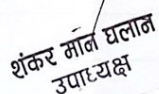 शंकर मान घलान
उपाध्यक्ष